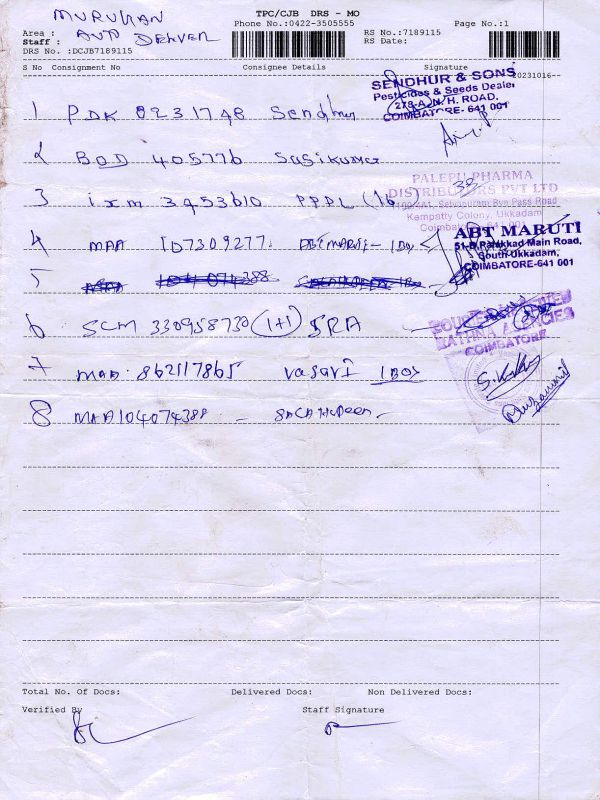 MURUHAN
AUTO DRIVER
TPC/CJB DRS - MO
Phone No.:0422-3505555
Page No.:1
Area :
Staff :
DRS No. :DCJB7189115
RS No.:7189115
RS Date:
S No Consignment No Consignee Details Signature
20231016--
1 PDK 0231748 Sendhur
SENDHUR & SONS
Pesticides & Seeds Dealer
278-A, N. H. ROAD,
COIMBATORE- 641 001
2 BOD 405776 Sasikumar
3 ixm 3453610 PPPL (16)
33
PALEPU PHARMA
DISTRIBUTORS PVT LTD
Selvapuram Bye Pass Road
Kempatty Colony, Ukkadam
4 MAA 107309277. ABT MARUTI - 1BOX
ABT MARUTI
51-B, Parakkad Main Road,
South Ukkadam,
COIMBATORE-641 001
5
6 SCM 330958730 (1+1) SRA
RATHNA AGENCIES
COIMBATORE
7 MAA 862117865 vasavi 1BOX
8 MAA 104074388
Total No. Of Docs: Delivered Docs: Non Delivered Docs:
Verified By Staff Signature